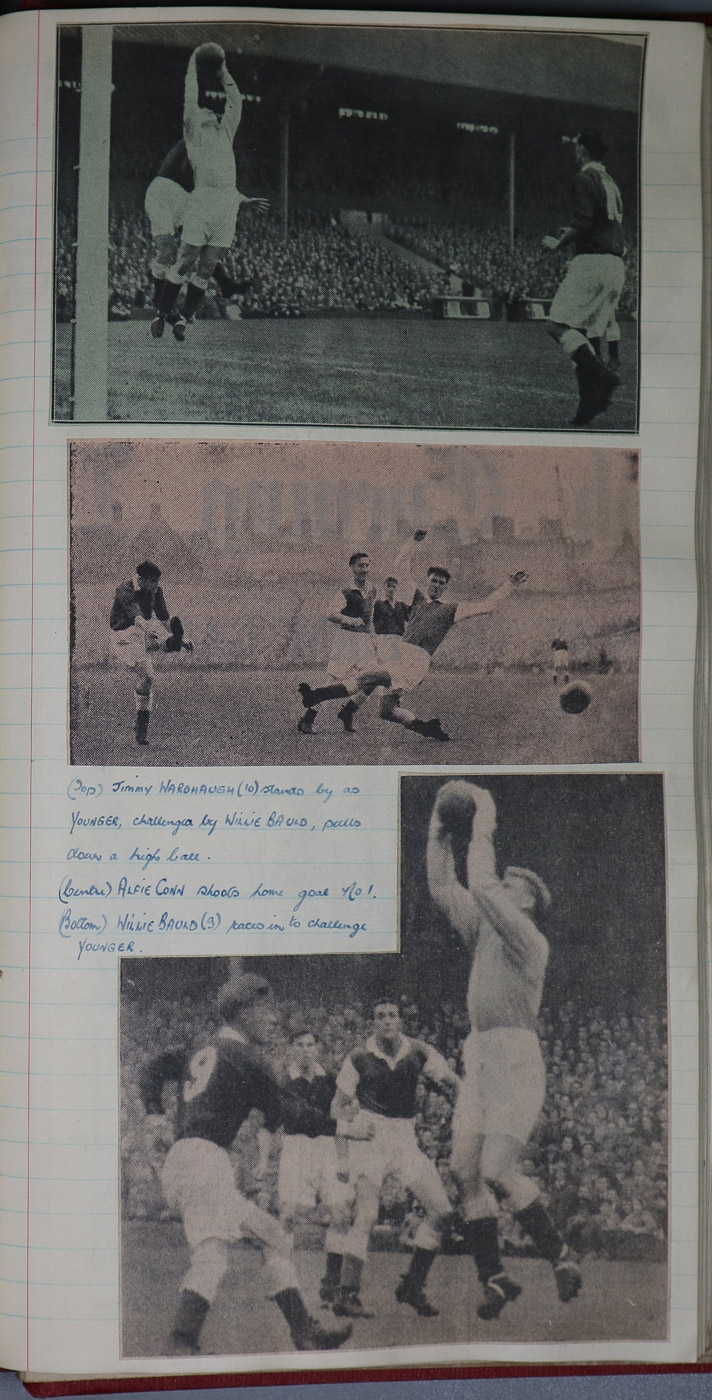 10
(Top) Jimmy WARDHAUGH (10) stands by as
YOUNGER, challenged by WILLIE BAULD, pulls
down a high ball.
(Centre) ALFIE CONN shoots home goal No 1.
(Bottom) WILLIE BAULD (9) races in to challenge
YOUNGER.
9